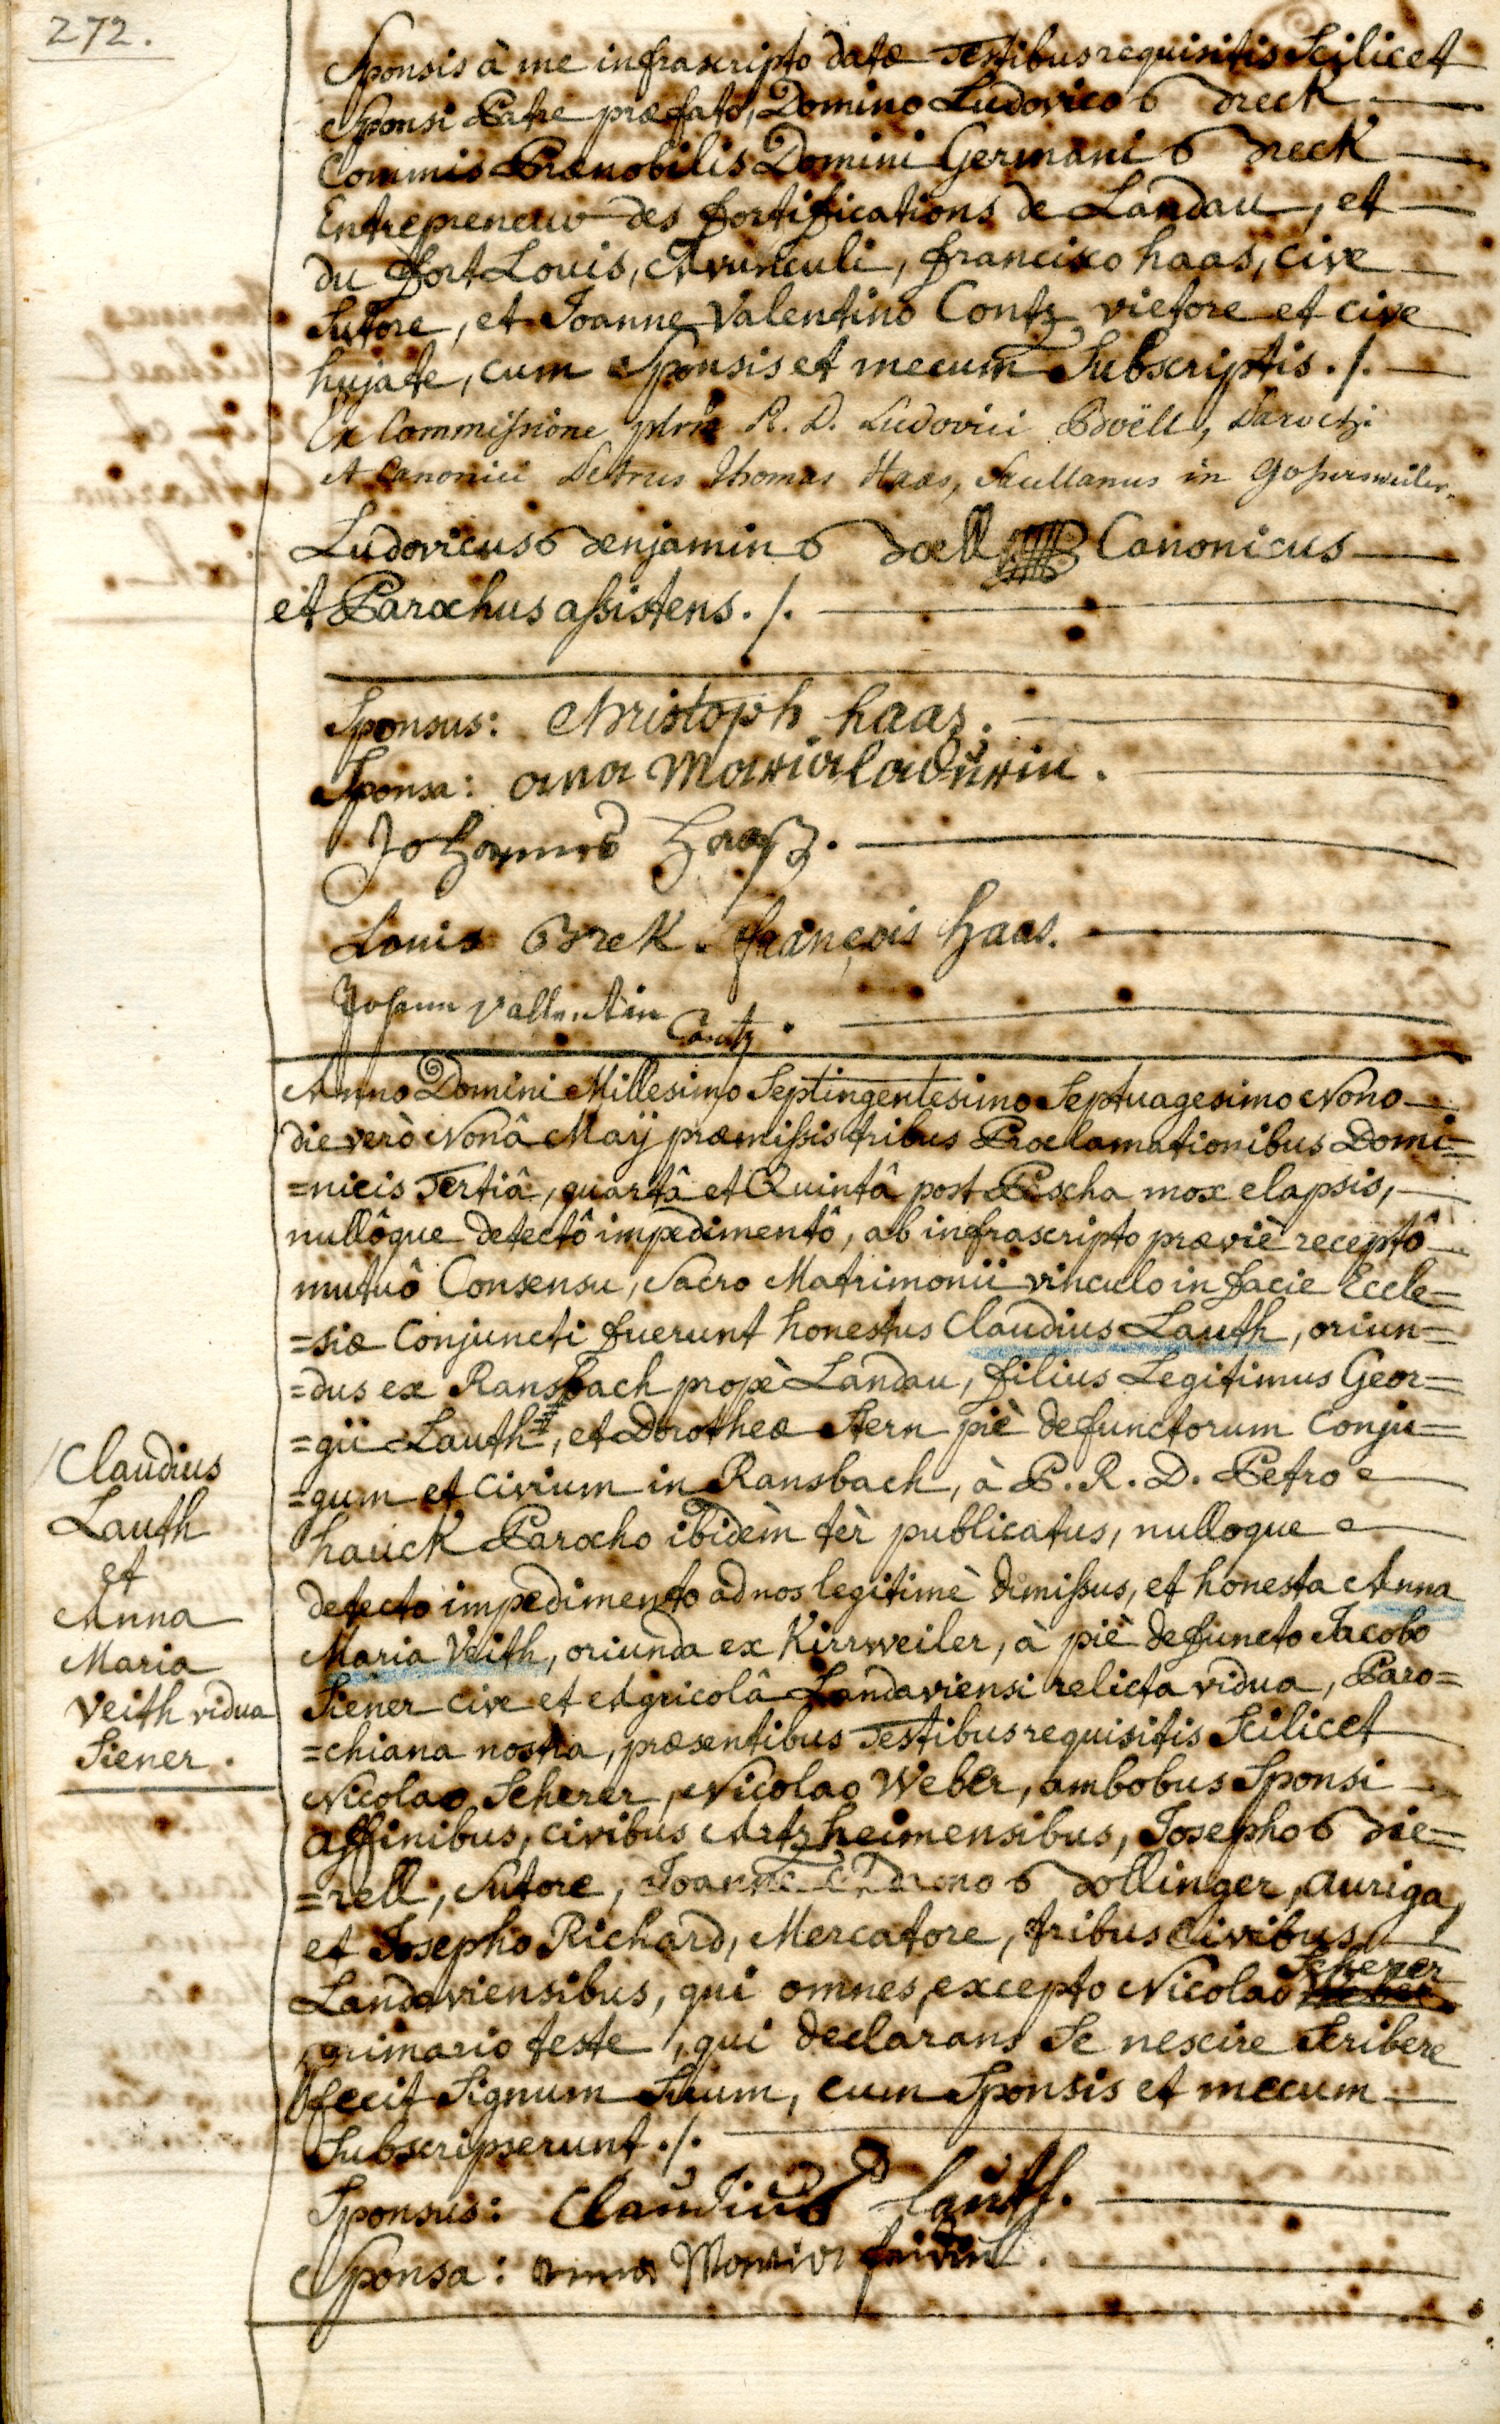 272.
Sponsis à me infrascripto datæ Testibus requisitis Scilicet
Sponsi Patre præfato, Domino Ludovico Breck
Commis Prænobilis Domini Germani Breck
Entrepreneur des fortifications de Landau, et
du fort Louis, Avunculi, francisco haas, cive
Sutore, et Joanne Valentino Contz vietore et cive
hujate, cum Sponsis et mecum Subscriptis ./.
Ex Commissione R. D. Ludovici Böell, Parochi
et Canonici Petrus Thomas Haas, Sacellanus in Gossersweiler.
Ludovicus Benjamin Boell Canonicus
et Parochus assistens ./.
Sponsus: Christoph haas.
Sponsa: ana Maria
Johannes Haaß.
Louis Brek. françois haas.
Johann Vallentin
Contz.
Anno Domini Millesimo Septingentesimo Septuagesimo Nono
die verò Nonâ Maÿ præmissis tribus Proclamationibus Domi=
=nicis Tertiâ, quartâ et Quintâ post Pascha mox elapsis,
nullôque detectô impedimentô, ab infrascripto præviè receptô
mutuô Consensu, Sacro Matrimonii vinculo in facie Eccle=
=siæ Conjuncti fuerunt honestus Claudius Lauth, oriun=
=dus ex Ransbach propè Landau, filius Legitimus Geor=
=gii Lauth, et Dorotheæ Stern piè defunctorum Conju=
=gum et Civium in Ransbach, à P. R. D. Petro
hauck Parocho ibidèm tèr publicatus, nulloque
detecto impedimento ad nos legitimè dimissus, et honesta Anna
Maria Veith, oriunda ex Kirrweiler, à piè defuncto Jacobo
Siener cive et Agricolâ Landaviensi relicta vidua, Paro=
=chiana nostra, præsentibus Testibus requisitis Scilicet
Nicolao Scherer, Nicolao Weber, ambobus Sponsi
affinibus, civibus Artzheimensibus, Josepho Bie=
=rell, Sutore, Joanne Adamo Bollinger, auriga,
et Josepho Richard, Mercatore, tribus Civibus
Landaviensibus, qui omnes, excepto Nicolao Scherer
primario teste, qui declarans Se nescire Scribere
fecit Signum Suum, cum Sponsis et mecum
Subscripserunt ./.
Sponsus: Claudius Lauth.
Sponsa: anna Maria
Claudius
Lauth
et
Anna
Maria
Veith vidua
Siener.